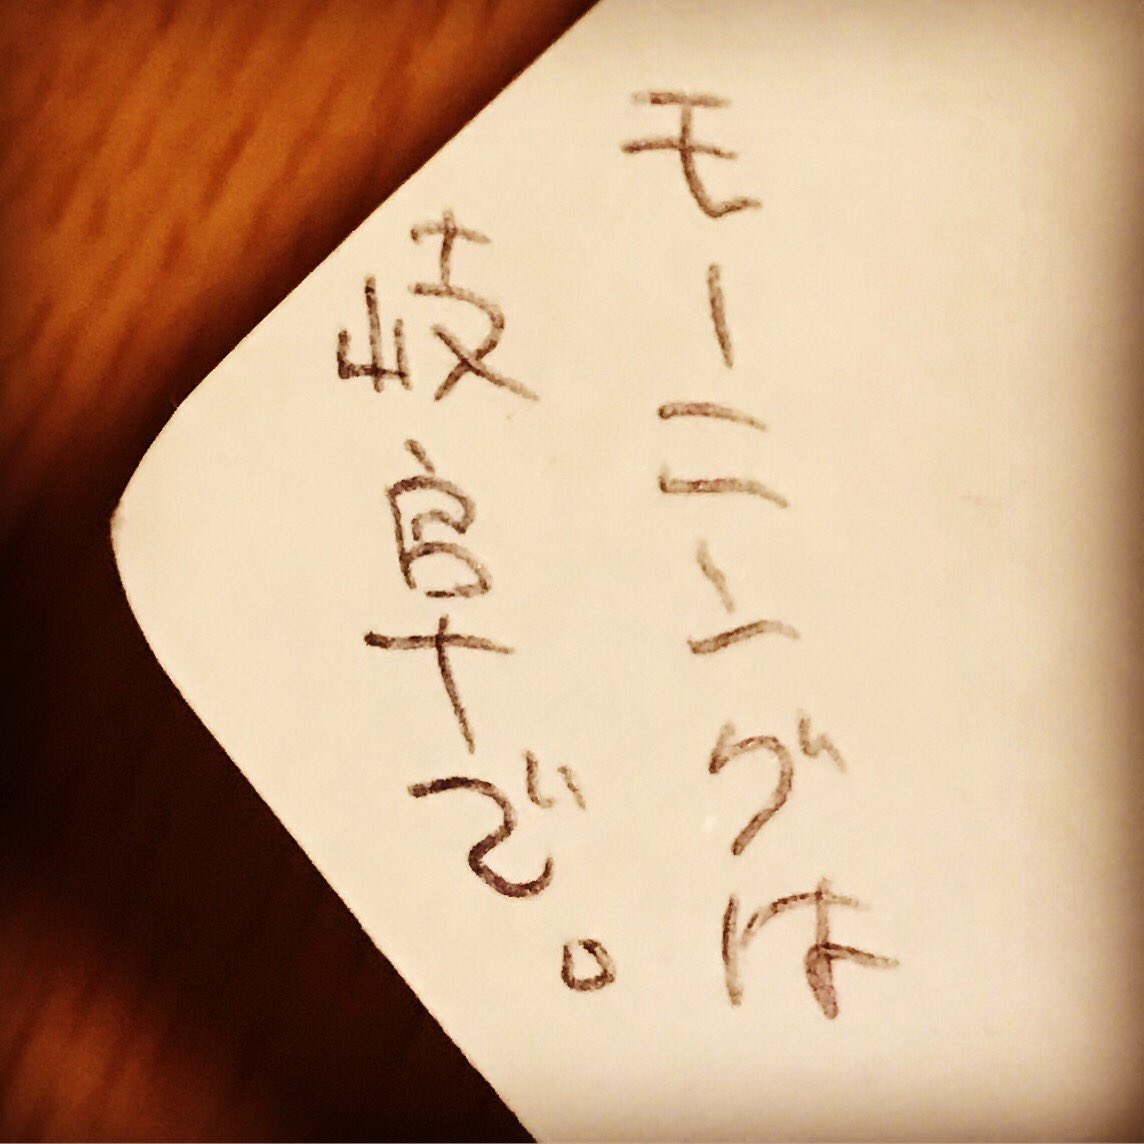 モーニングは
岐阜で。